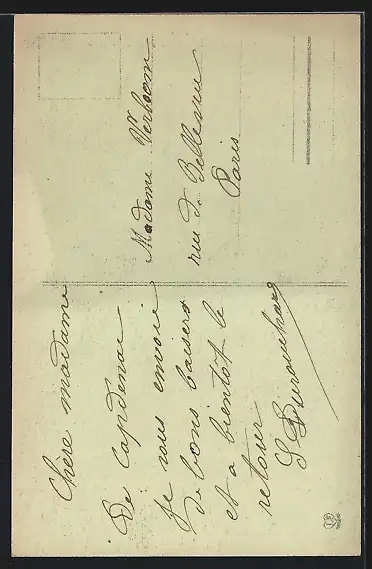 Chère madame
De Capdenac
je vous envoie
de bons baisers
et a bientôt le
retour
Madame Verboom
rue de Bellevue
Paris